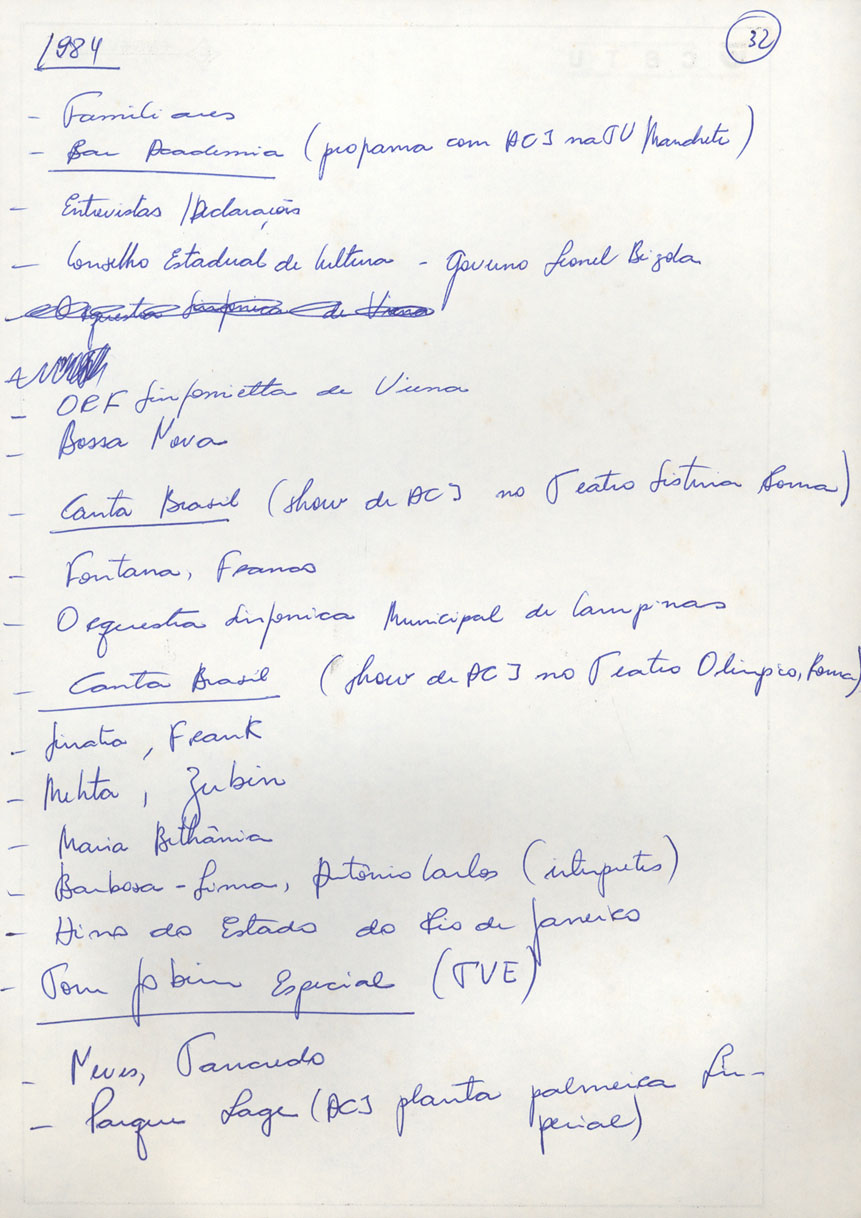 1984
32
- Familiares
- Bar Academia (programa com ACJ na TV Manchete)
- Entrevistas / Declarações
- Conselho Estadual de Cultura - Governo Leonel Brizola
Orquestra Sinfonica de Viena
- ORF Sinfonietta de Viena
- Bossa Nova
- Canta Brasil (show de ACJ no Teatro Sistina, Roma)
- Fontana, Franco
- Orquestra Sinfonica Municipal de Campinas
- Canta Brasil (show de ACJ no Teatro Olimpico, Roma)
- Sinatra, Frank
- Mehta, Zubin
- Maria Bethânia
- Barbosa-Lima, Antônio Carlos (intérpretes)
- Hino do Estado do Rio de Janeiro
- Tom Jobim Especial (TVE)
- Neves, Tancredo
- Parque Lage (ACJ planta palmeira Im-
perial)